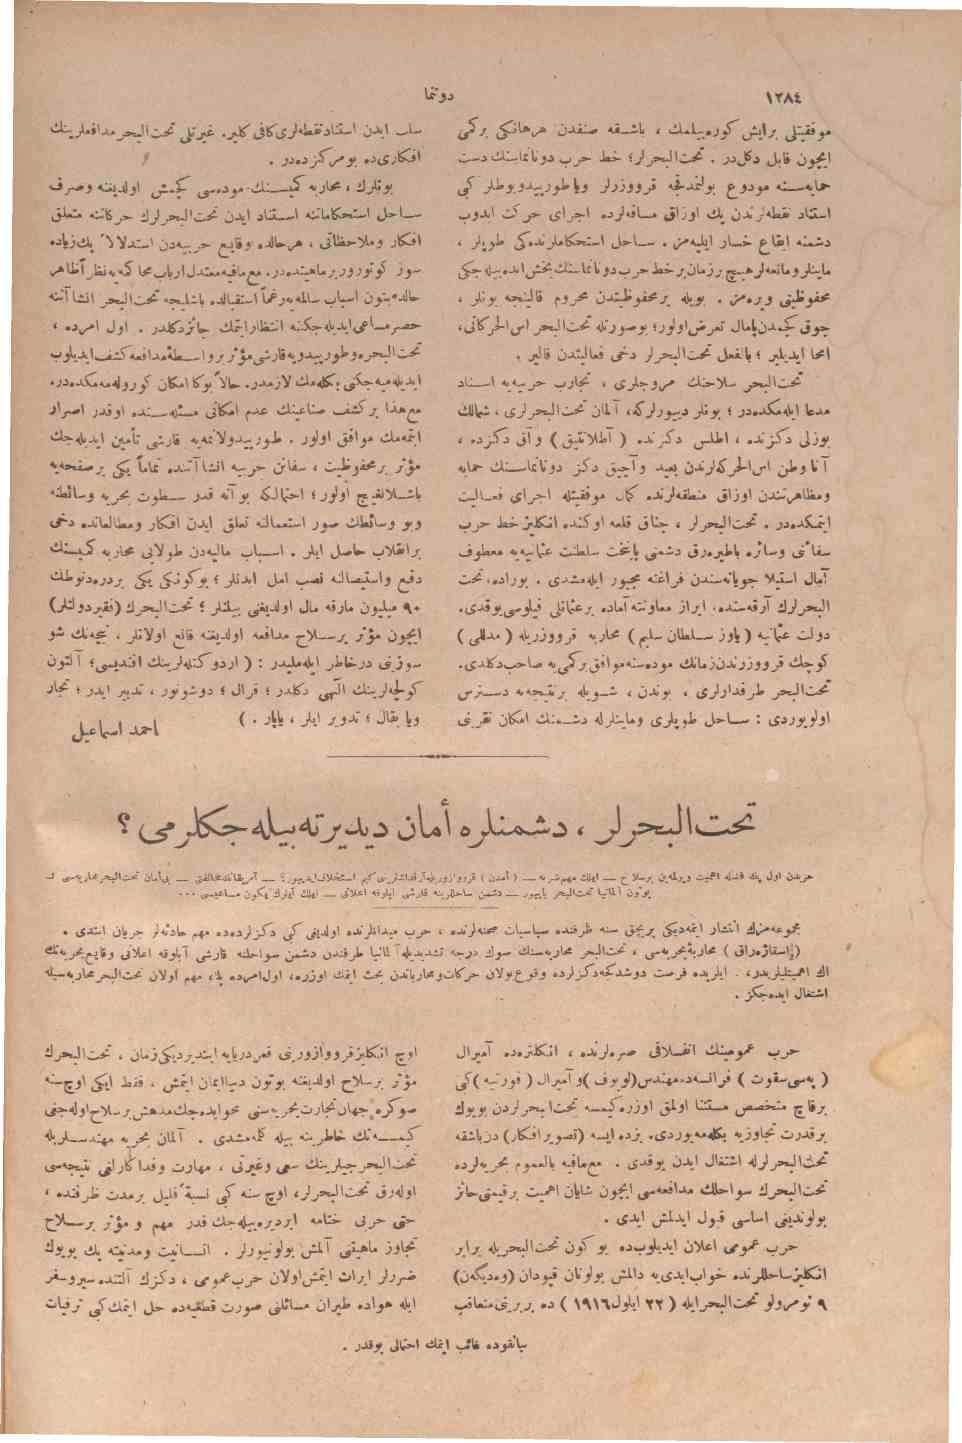 ١٢٨٤
دوننما
موفقيتلی برايش كوره‌بيلمك ، باشـقه صنفدن هرهانكی بركمی
ايچون قابل دكلدر . تحت‌البحرلر؛ خط حرب دوناماسنك دست
حمايه‌سنه مودوع بولنمدقجه قرووزرلر وياطورپيدوبوطلر كبی
استناد نقطه‌لرندن پك اوزاق مسافه‌لرده اجرای حركت ايدوب
دشمنه ايقاع خسار ايليه‌مز . ساحل استحكاملرنده‌كی طوپلر ،
ماينلر ومانعه‌لر هيچ برزمان برخط حرب دوناماسنك بخش ايده‌بيله‌جكی
محفوظيتی ويره‌مز . بويله برمحفوظيتدن محروم قالينجه بونلر ،
چوق كچمدن پامال تعرض اولور؛ بوصورتله تحت‌البحر اس‌الحركاتی،
امحا ايديلير ؛ بالفعل تحت‌البحرلر دخی فعاليتدن قالير .
تحت‌البحر سلاحنك مروجلری ، تجارب حربيه‌يه اسـناد
مدعا ايله‌مكده‌در ؛ بونلر ديپورلركه، آلمان تحت‌البحرلری ، شمالك
بوزلی دكزنده ، اطلس دكزنده ( آطلانتيق ) وآق دكزده ،
آنا وطن اس‌الحركه‌لرندن بعيد وآچيق دكز دوناماسـنك حمايه
ومظاهرتندن اوزاق منطقه‌لرنده كمال موفقيتله اجرای فعـاليت
ايتمكده‌در . تحت‌البحرلر ، چناق قلعه اوكنده انكليز خط حرب
سفائنی وسائره باطيره‌رق دشمنی پايتخت سلطنت عثمانيه‌يه معطوف
آمال استيلا جويانه‌سندن فراغته مجبور ايله‌مشدی . بوراده، تحت
البحرلرك آرقه‌سنده، ابراز معاونته آماده برعثمانلی فيلوسی يوقدی.
دولت عثمانيه ( ياوز سـلطان سليم ) محاربه قرووزريله ( مدللی )
كوچك قرووزرندن زمانك موده‌سنه موافق بركمی‌يه صاحب دكلدی.
تحت‌البحر طرفدارلری ، بوندن ، شـويله برنتيجه‌يه دسـترس
اولويوردی : سـاحل طوپلری وماينلرله دشـمنك امكان تقربنی
سلب ايدن استناد نقطه‌لری كافی كلير. غيرتلی تحت‌البحر مدافعلرينك
افكاری‌ده بو مركزده‌در .
بونلرك ، محاربه كميسـنك موده‌سی كچمش اولديغنه وصرف
سـاحل استحكاماتنه اسـتناد ايدن تحت‌البحرلرك حركاتنه متعلق
افكار وملاحظاتی ، هرحالده وقايـع حربيه‌دن استدلالاً پك زياده
سوز كوتورور برماهيتده‌در. مع‌مافيه معتدل ارباب محاكمه‌يه نظراً ظاهر
حالده بتون اسباب سالمه‌يه رغماً استقبالده باشليجه تحت‌البحر انشاآتنه
حصر مساعی ايديله‌جكنه انتظار ايتمك جائزدكلدر . اول امرده ،
تحت‌البحره وطورپيدويه قارشی مؤثر بر واسـطهٔ مدافعه كشف ايديلوب
ايديله‌ميه‌جكنی بكله‌مك لازمدر. حالاً بوكا امكان كوروله‌مه‌مكده‌در.
مع‌هذا بركشف صناعينك عدم امكانی مسئله‌سـنده اوقدر اصرار
ايتمه‌مك موافق اولور . طـورپيدولانمه‌يه قارشی تأمين ايديله‌جك
مؤثر برمحفوظيت ، سفائن حربيه انشاآتنده تماماً يكی برصفحه‌يه
باشـلانغيج اولور؛ احتمالكه بوآنه قدر سـطوت بحريه وسائطنه
وبو وسائطك صور استعمالنه تعلق ايدن افكار ومطالعاتده دخی
برانقلاب حاصل ايلر . اسـباب ماليه‌دن طولايی محاربه كميسنك
دفع واستيصالنه نصب امل ايدنلر ؛ بوكونكی يكی بردره‌دنوطك
٩٠ ميليون مارقه مال اولديغنی بيلنلر ؛ تحت‌البحرك (فقيردولتلر)
ايچون مؤثر برسـلاح مدافعه اولديغنه قانع اولانلر ، نيچه‌نك شو
سوزنی درخاطر ايله‌مليدر : ( اردو كتله‌لرينك افنديسی؛ آلتون
كولچه‌لرينك الٓهی دكلدر ؛ قرال ؛ دوشونور ، تدبير ايدر ؛ تجار
ويا بقال ؛ تدوير ايلر ، ياپار . )
احمد اسماعيل
تحت‌البحرلر ، دشمنلره أمان ديديرته‌بيله‌جكلرمی ؟
حربدن اول پك فضله اهميت ويرلمه‌ين برسلاح — ايلك مهم ضربه — ( أمدن ) قرووازوريله آرقداشلرينی كيم استخلاف ايدييور؟ — آمريقانك مخالفتی — بی‌أمان تحت‌البحر محاربه‌سی —
بوتون آلمانيا تحت‌البحر ياپييور — دشمن ساحللرينه قارشی ابلوقه اعلانی — ايلك آيلرك يكون مساعيسی ...
مجموعه‌مزك انتشار ايتمه‌ديكی بريچق سنه ظرفنده سياسيات صحنه‌لرنده ، حرب ميدانلرنده اولديغی كبی دكزلرده‌ده مهم حادثه‌لر جريان ايتدی .
( اسقاژه‌راق ) محاربهٔ بحريه‌سی ، تحت‌البحر محاربه‌سنك سوك درجه تشديديله آلمانيا طرفندن دشمن سواحلنه قارشی آبلوقه اعلانی وقايـع بحريه‌نك
اك اهميتليلريدر. ايلريده فرصت دوشدكجه دكزلرده وقوع‌بولان حركات ومحارباتدن بحث ايتمك اوزره، اول‌امرده پك مهم اولان تحت‌البحر محاربه‌سيله
اشتغال ايده‌جكز .
حرب عموميـنك انفـلاقی صره‌لرنده ، انكلتره‌ده آميرال
( په‌سی سقوت ) فرانسه‌ده مهندس (لوبوف )و آميرال ( فورنيه )كبی
برقاچ متخصص مستثنا اولمق اوزره كيمسه تحت‌البحرلردن بويوك
برقدرت تجاوزيه بكله‌مه‌يوردی. بزده ايسه (تصوير افكار) دن باشقه
تحت‌البحرلرله اشتغال ايدن يوقدی . مع‌مافيه بالعموم بحريه‌لرده
تحت‌البحرك سواحلك مدافعه‌سی ايچون شايان اهميت برقيمتی حائز
بولونديغی اساسی قبول ايدلمش ايدی .
حرب عمومی اعلان ايديلوب‌ده بر كون تحت‌البحريله برابر
انكليز ساحللرنده خواب ابدی‌يه دالمش بولونان قپودان (وه‌ديگه‌ن)
٩ نومرولو تحت‌البحرايله ( ٢٢ ايلول ١٩١٦ ) ده بربرينی متعاقب
اوچ انكليز قرووازورينی قعر دريايه اينديرديكی زمان ، تحت‌البحرك
مؤثر برسلاح اولديغنه بوتون دنيا ايمان ايتمش ، فقط ايكی اوچ سنه
صوكره جهان تجارت بحريه‌سنی محوايده‌جك مدهش برسلاح اوله‌جغی
كيمسـه‌نك خاطرينه بيله كلمه‌مشدی . آلمان بحريه مهندسـلريله
تحت‌البحرجيلرينك سعی وغيرتی ، مهارت وفداكارلغی نتيجه‌سی
اوله‌رق تحت‌البحرلر، اوچ سنه كبی نسبةً قليل برمدت ظرفنده ،
حتی حربی ختامه ايرديره‌بيله‌جك قدر مهم و مؤثر برسـلاح
تجاوز ماهيتنی آلمش بولونيورلر . انسـانيت ومدنيته پك بويوك
ضررلر ايراث ايتمش‌اولان حرب‌عمومی ، دكزك آلتنده سيروسفر
ايله هواده طيران مسائلنی صورت قطعيه‌ده حل ايتمك كبی ترقيات
سانفوده غائب ايتمك احتمالی يوقدر .